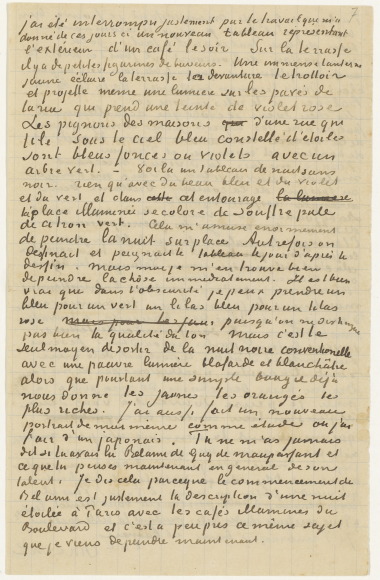 7
j'ai été interrompu justement par le travail que m'a
donné de ces jours ci un nouveau tableau représentant
l'extérieur d'un café le soir. Sur la terrasse
il y a de petites figurines de buveurs. Une immense lanterne
jaune éclaire la terrasse la devanture le trottoir
et projette meme une lumière sur les pavés de
la rue qui prend une teinte de violet rose
Les pignons des maisons d'une rue qui
file sous le ciel bleu constellé d'étoiles
sont bleus foncés ou violets avec un
arbre vert. – Voilà un tableau de nuit sans
noir. rien qu'avec du beau bleu et du violet
et du vert et dans cet entourage la lumière
la place illuminée se colore de souffre pâle
de citron vert. Cela m'amuse énormément
de peindre la nuit sur place Autrefois on
dessinait et peignait le tableau le jour d'après le
dessin. – Mais moi je m'en trouve bien
de peindre la chose immédiatement. Il est bien
vrai que dans l'obscurité je peux prendre un
bleu pour un vert un lilas bleu pour un lilas
rose puisqu'on ne distingue
pas bien la qualité du ton. Mais c'est le
seul moyen de sortir de la nuit noire conventionelle
avec une pauvre lumière blafarde et blanchâtre
alors que pourtant une simple bougie déjà
nous donne les jaunes les orangés les
plus riches. J'ai aussi fait un nouveau
portrait de moi meme comme étude où j'ai
l'air d'un japonais. Tu ne m'as jamais
dit si tu avais lu Bel ami de Guy de maupassant et
ce que tu penses maintenant en general de son
talent. Je dis cela parceque le commencement de
Bel ami est justement la description d'une nuit
étoilée à Paris avec les cafés illuminés du
Boulevard et c'est à peu près ce même sujet
que je viens de peindre maintenant.